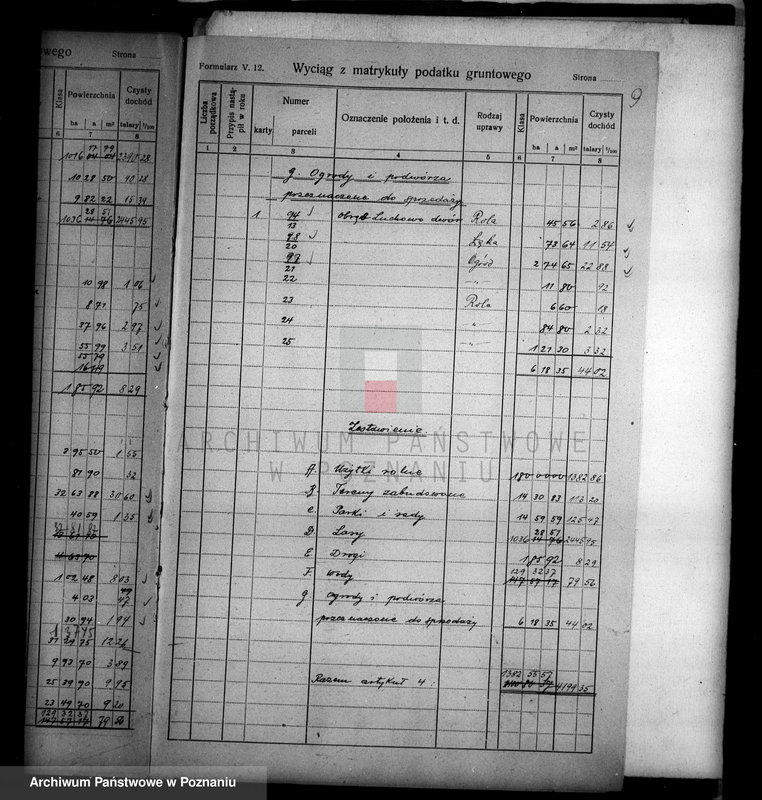 wego Strona
Klasa Powierzchnia Czysty dochód
ha a m² talary 1/100
6 7 8
10 28 50 90 28
9 82 22 15 39
10 98 1 06
8 71 75
37 96 2 97
55 99 3 51
1 85 92 8 29
2 95 50 1 55
81 90 32
32 63 88 30 60
40 59 1 35
1 02 48 8 03
4 03 47
30 94 1 94
31 29 75 12 26
9 93 70 3 89
25 39 90 9 95
23 49 70 9 20
129 32 37
147 57 17 79 56
Formularz V. 12. Wyciąg z matrykuły podatku gruntowego Strona
9
Liczba porządkowa Przypis nastąpił w roku Numer Oznaczenie położenia i t. d. Rodzaj uprawy Klasa Powierzchnia Czysty dochód
karty parceli ha a m² talary 1/100
1 2 3 4 5 6 7 8
g. Ogrody i podwórza
przeznaczone do sprzedaży
1 94 obręb Luchowo dwór Rola 45 56 2 86
13
98 Łąka 73 64 11 54
20
93 Ogród 2 74 65 22 88
21
22 " 11 80 92
23 Rola 6 60 18
24 " 84 80 2 32
25 " 1 21 30 3 32
6 18 35 44 02
Zestawienie
A. Użytki rolne 1382 86
B. Tereny zabudowane 14 30 83 113 20
C. Parki i sady 14 59 59 125 47
28 51
D. Lasy 1036 14 76 2445 95
E. Drogi 1 85 92 8 29
129 32 37
F. wody 147 57 17 79 56
g. ogrody i podwórza
przeznaczone do sprzedaży 6 18 35 44 02
1382 55 57
Razem artykuł 4: 4199 35
ARCHIWUM PAŃSTWOWE
W POZNANIU
Archiwum Państwowe w Poznaniu